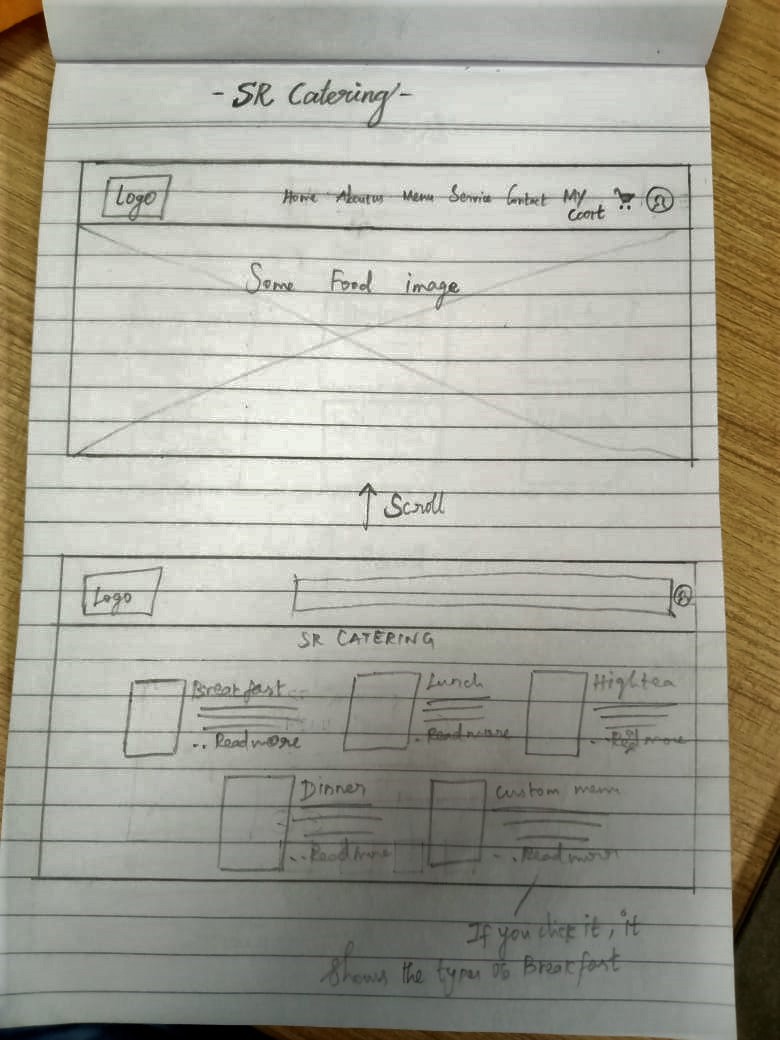 - SR Catering -
Logo Home Aboutus Menu Service Contact My
Coort
Some Food image
↑ Scroll
Logo
SR CATERING
Breakfast Lunch Hightea
.. Readmore . Readmore .. Read more
Dinner Custom menu
... Readmore - .. Readmore
If you click it, it
Shows the types of Breakfast